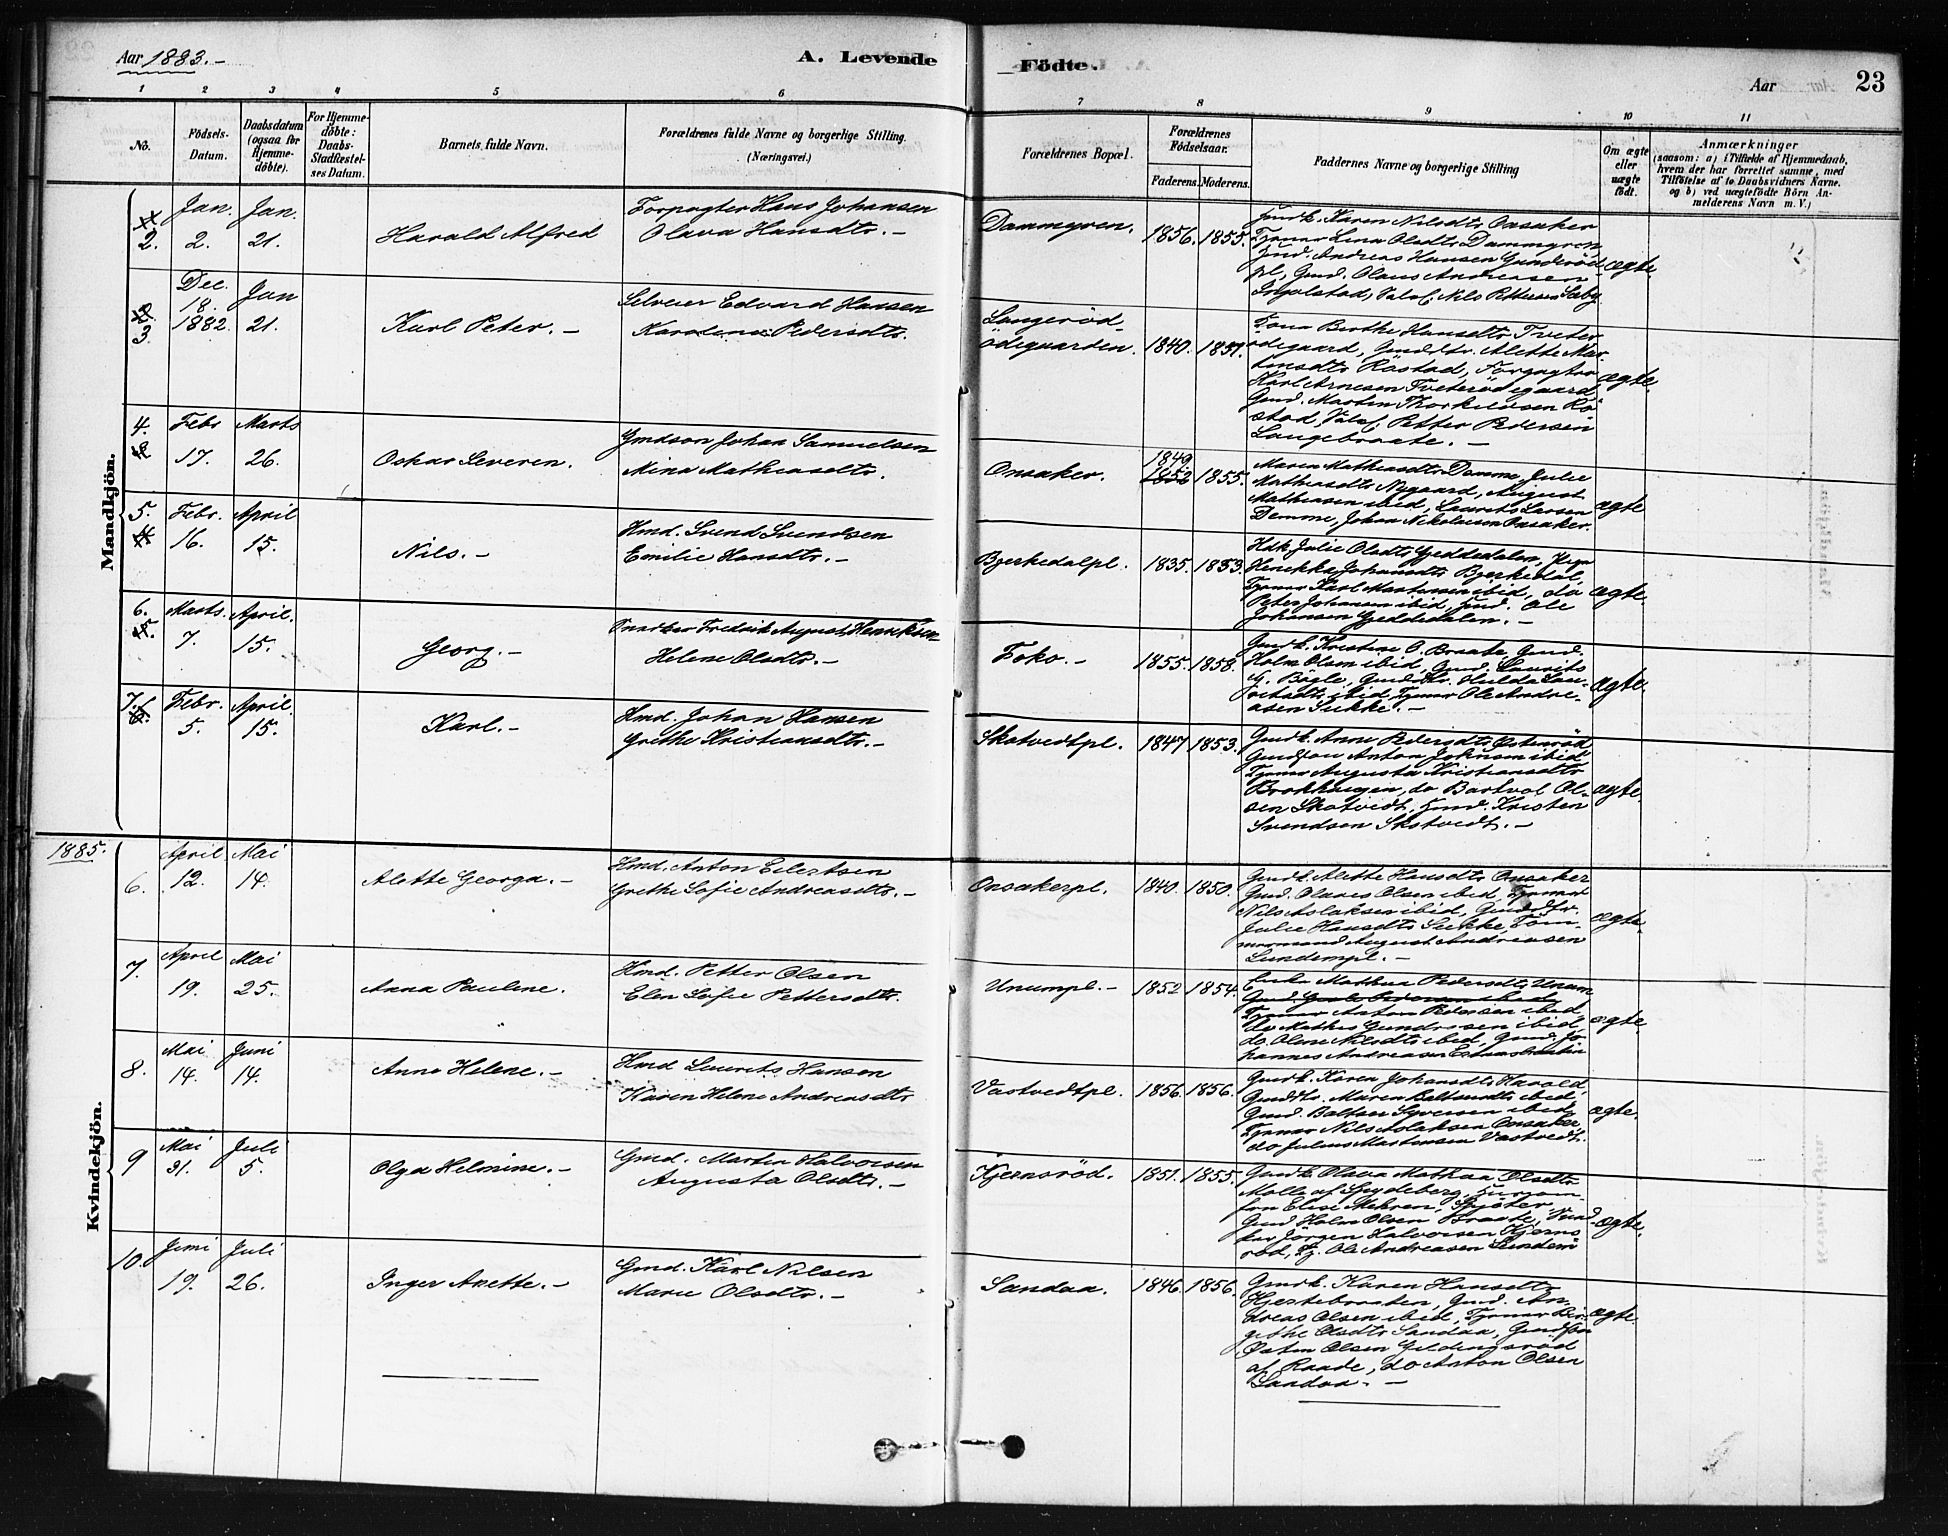 Aar 1883.-
A. Levende Födte.
Aar
23
1 2 3 4 5 6 7 8 9 10 11
No.
Födsels-Datum.
Daabsdatum (ogsaa for Hjemme-döbte).
For Hjemme-döbte: Daabs-Stadfæstel-ses Datum.
Barnets fulde Navn.
Forældrenes fulde Navne og borgerlige Stilling. (Næringsvei.)
Forældrenes Bopæl.
Forældrenes Födselsaar.
Faderens. Moderens.
Faddernes Navne og borgerlige Stilling
Om ægte eller uægte födt.
Anmærkninger
(saasom: a) i Tilfælde af Hjemmedaab, hvem der har forrettet samme, med Tilföielse af to Daabsvidners Navne. og b) ved uægtefödte Börn Anmelderens Navn m. V.)
Mandkjön.
2. Jan. 2. Jan. 21. Harald Alfred
Forpagter Hans Johansen
Olava Hansdtr. -
Dammyren. 1856. 1855.
Gmdk. Karen Nilsdtr Onsaker
Tjmmr Lina Olsdtr Dammyren,
Gmd. Andreas Hansen Gunderöd
pl, Gmd. Olaus Andreasen
Ingolstad, Nils Pettersen Sæby.
ægte.
3. Dec. 18. 1882. Jan 21. Karl Peter. -
Selveier Edvard Hansen
Karolina Pedersdtr.
Langeröd-
ödegaarden. 1840. 1851.
Berthe Hansdtr Tveter
ödegaard, Gmddtr. Alette Mar-
tinsdtr Röstad, Forpagter
Karl Arnesen Tveterödegaard
Gmd. Martin Thorkildsen Rö
stad, Petter Pedersen
Langebraate. -
ægte.
4. Febr 17. Marts 26. Oskar Severin.
Gmdson Johan Samuelsen
Mina Mathiasdtr.
Onsaker. 1849 1852 1855.
Maren Mathiasdtr Damme, Julie
Mathiasdtr Nygaard, August
Mathiasen ibid, Laurits Larsen
Damme, Johan Nikolaisen Onsaker.
ægte
5. Febr. 16. April 15. Nils. -
Hmd. Svend Svendsen
Emilie Hansdtr. -
Bjerkedalpl. 1835. 1853.
Hdk Julie Olsdtr Gjeddedalen, Piga
Henrikka Johansdtr Bjerkedal,
Tjmmr Karl Martinsen ibid, do
Peter Johansen ibid, Hmd. Ole
Johansen Gjeddedalen. -
ægte.
6. Marts. 7. April. 15. Georg. -
Snedker Fredrik August Henriksen
Helene Olsdtr. -
Foko. - 1855. 1858.
Gmdk. Kristine O. Braate, Gmd.
Holm Olsen ibid, Gmd. Laurits
Bögle, Gmddtr. Hulda Lau-
ritsdtr ibid, Tjmmr Ole Andre-
asen Sukke. -
ægte.
7. Febr. 5. April. 15. Karl. -
Hmd. Johan Hansen
Grethe Kristiansdtr. -
Skotvedtpl. 1847 1853.
Gmdk. Anne Pedersdtr Östenröd
Gmdsön Anton Johnsen ibid
Tjmmr Augusta Kristiansdtr
Brokhaugen, do Bartvol Ol-
sen Skotvedt, Hmd. Kristen
Svendsen Skotvedt. -
ægte.
1885.
Kvindekjön.
6. April 12. Mai 14. Alette Georga. -
Hmd. Anton Eilertsen
Grethe Sofie Andreasdtr. -
Onsakerpl. 1840. 1850.
Gmdk. Alette Hansdtr Onsaker
Gmd. Olaves Olsen ibid, Tjmmr
Nils Aslaksen ibid, Gmddtr.
Julie Hansdtr Sukke, Töm-
mermand August Andreasen
Lundempl. -
ægte.
7. April 19. Mai 25. Anna Pauline.
Hmd. Petter Olsen
Elen Sofie Pettersdtr.
Unumpl. - 1852 1854.
Enke Mathea Pedersdtr Unum
Tjmmr Anton Pedersen ibid,
do Mathis Gundersen ibid,
do. Oline Nilsdtr ibid, Gmd. Jo
hannes Andreasen
ægte
8. Mai 14. Juni 14. Anne Helene. -
Hmd Laurits Hansen
Karen Helene Andreasdtr
Vastvedtpl. 1856. 1856.
Gmdk. Karen Johansdtr Harald,
Gmddtr. Maren Baltsersdtr ibid,
Gmd. Baltser Syversen ibid,
Tjmmr Nils Aslaksen Onsaker,
do Julius Martinsen Vastvedt.
ægte.
9 Mai 31. Juli 5. Olga Helmine. -
Gmd. Martin Halvorsen
Augusta Olsdtr. -
Kjernsröd. 1851. 1855.
Gmdk. Olava Mathea Olsdtr
Molle af Spydeberg,
Elise Mehren,
Gmd Holm Olsen Braate,
Jörgen Halvorsen Kjerns
röd, Ole Andreasen Lundem
ægte.
10. Juni 19. Juli 26. Inger Anette. -
Gmd. Karl Nilsen
Marie Olsdtr. -
Sandaa. 1846. 1856.
Gmdk. Karen Hansdtr
Hestebraaten, Gmd. An-
dreas Olsen ibid, Tjmmr Bir-
githe Olsdtr Sandaa, Gmdsön
Östen Olsen Gildingsröd
af Raade, do Anton Olsen
Sandaa. -
ægte.